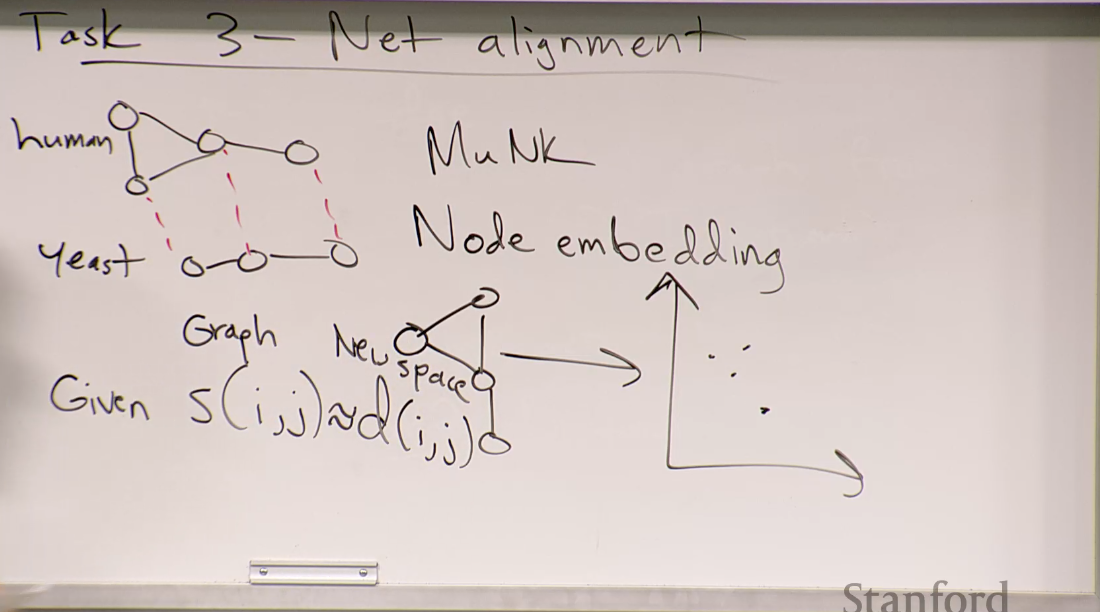 Task 3 - Net alignment
human
MuNK
Node embedding
Yeast
Graph New space
Given S(i,j) ≈ d(i,j)
Stanford